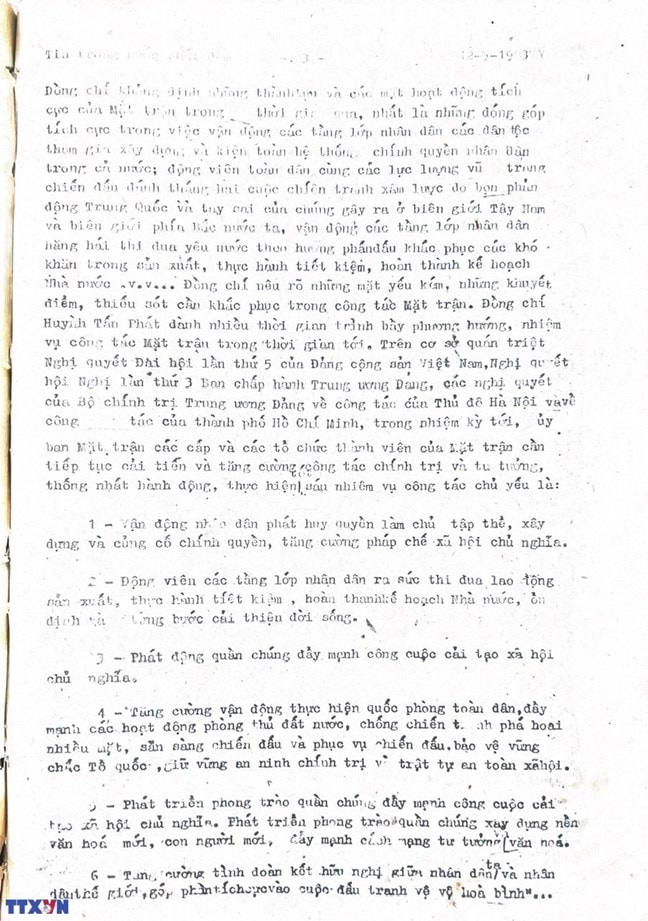 Tin trong
- 3 -
12-5-1983
Đồng chí khẳng định những thànhtựu và các mặt hoạt động tích
cực của Mặt trận trong thời gian qua, nhất là những đóng góp
tích cực trong việc vận động các tầng lớp nhân dân các dân tộc
tham gia xây dựng và kiện toàn hệ thống chính quyền nhân dân
trong cả nước; động viên toàn dân cùng các lực lượng vũ trang
chiến đấu đánh thắng hai cuộc chiến tranh xâm lược do bọn phản
động Trung Quốc và tay sai của chúng gây ra ở biên giới Tây Nam
và biên giới phía Bắc nước ta, vận động các tầng lớp nhân dân
hăng hái thi đua yêu nước theo hướng phấnđấu khắc phục các khó
khăn trong sản xuất, thực hành tiết kiệm, hoàn thành kế hoạch
Nhà nước .v.v... Đồng chí nêu rõ những mặt yếu kém, những khuyết
điểm, thiếu sót cần khắc phục trong công tác Mặt trận. Đồng chí
Huỳnh Tấn Phát dành nhiều thời gian trình bày phương hướng, nhiệm
vụ công tác Mặt trận trong thời gian tới. Trên cơ sở quán triệt
Nghị quyết Đài hội lần thứ 5 của Đảng cộng sản Việt Nam,Nghị quyết
hội Nghị lần thứ 3 Ban chấp hành Trung ương Đảng, các nghị quyết
của Bộ chính trị Trung ương Đảng về công tác của Thủ đô Hà Nội vàvề
công tác của thành phố Hồ Chí Minh, trong nhiệm kỳ tới, ủy
ban Mặt trận các cấp và các tổ chức thành viên của Mặt trận cần
tiếp tục cải tiến và tăng cường công tác chính trị và tư tưởng,
thống nhất hành động, thực hiện sáu nhiệm vụ công tác chủ yếu là:
1 - Vận động nhân dân phát huy quyền làm chủ tập thể, xây
dựng và củng cố chính quyền, tăng cường pháp chế xã hội chủ nghĩa.
2 - Động viên các tầng lớp nhân dân ra sức thi đua lao động
sản xuất, thực hành tiết kiệm , hoàn thànhkế hoạch Nhà nước, ổn
định và từng bước cải thiện đời sống.
3 - Phát động quần chúng đẩy mạnh công cuộc cải tạo xã hội
chủ nghĩa.
4 - Tăng cường vận động thực hiện quốc phòng toàn dân,đẩy
mạnh các hoạt động phòng thủ đất nước, chống chiến tranh phá hoại
nhiều mặt, sẵn sàng chiến đấu và phục vụ chiến đấu.bảo vệ vững
chắc Tổ quốc ,giữ vững an ninh chính trị và trật tự an toàn xãhội.
5 - Phát triển phong trào quần chúng đẩy mạnh công cuộc cải
tạo xã hội chủ nghĩa. Phát triển phong trào quần chúng xây dựng nền
văn hoá mới, con người mới, đẩy mạnh cách mạng tư tưởng/văn hoá.
6 - Tăng cường tình đoàn kết hữu nghị giữa nhân dân ta và nhân
dânthế giới,góp phầntíchcựcvào cuộc đấu tranh vệ vệ hoà bình"...
TTXVN